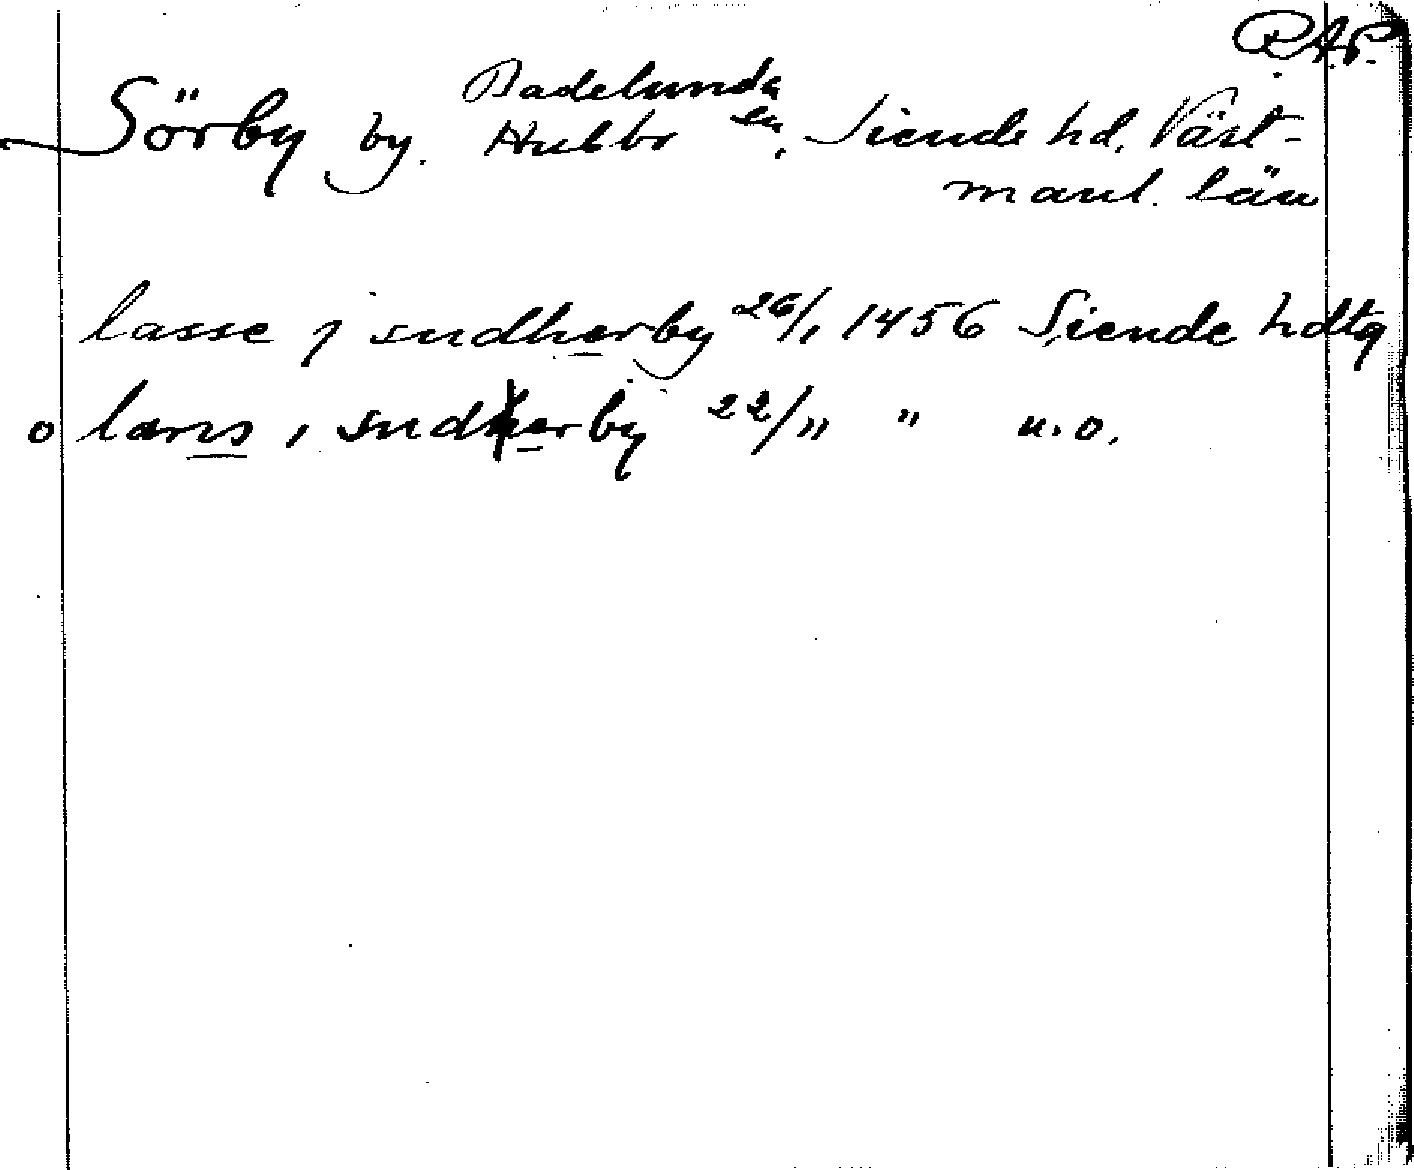 R.A.P.
Badelunda
Sörby by. Hubbo sn, Siende hd. Väst-
manl. län
lasse j sudherby 26/1 1456 Siende hdtg
o lans i sudherby 22/" " u.o.